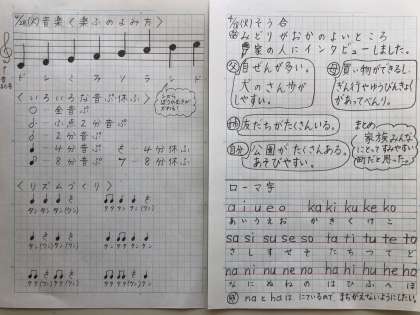 4/28(火)音楽〈楽ふのよみ方〉
ド レ ミ ファ ソ ラ シ ド
シから
ぼうのむきが
かわる!
〈いろいろな音ぷ休ふ〉
全音ぷ
ふ点2分音ぷ
2分音ぷ
4分音ぷ 4分休ふ
8分音ぷ 8分休ふ
〈リズムづくり〉
タン タン タン (ウン)
タタ タタ タン (ウン)
4/28(火)そう合
みどりがおかのよいところ
家の人にインタビューしました。
父 自ぜんが多い。
犬のさん歩が
しやすい。
母 買い物ができるし、
ぎん行やゆうびんきょく
があってべんり。
友だちがたくさんいる。
自分 公園がたくさんある。
あそびやすい。
まとめ
家族みんな
にとってすみやすい
町だと思った。
ローマ字
a i u e o ka ki ku ke ko
あ い う え お か き く け こ
sa si su se so ta ti tu te to
さ し す せ そ た ち つ て と
na ni nu ne no ha hi hu he ho
な に ぬ ね の は ひ ふ へ ほ
naとhaは にているので、まちがえないようにしたい。